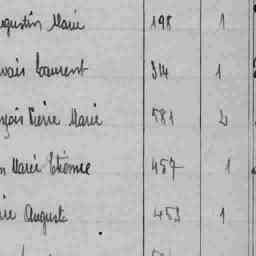 ugustin Marie 198 1
vais Laurent 314 1
nçois Pierre Marie 581 2
n Marie Etienne 457 1
rie Auguste 453 1